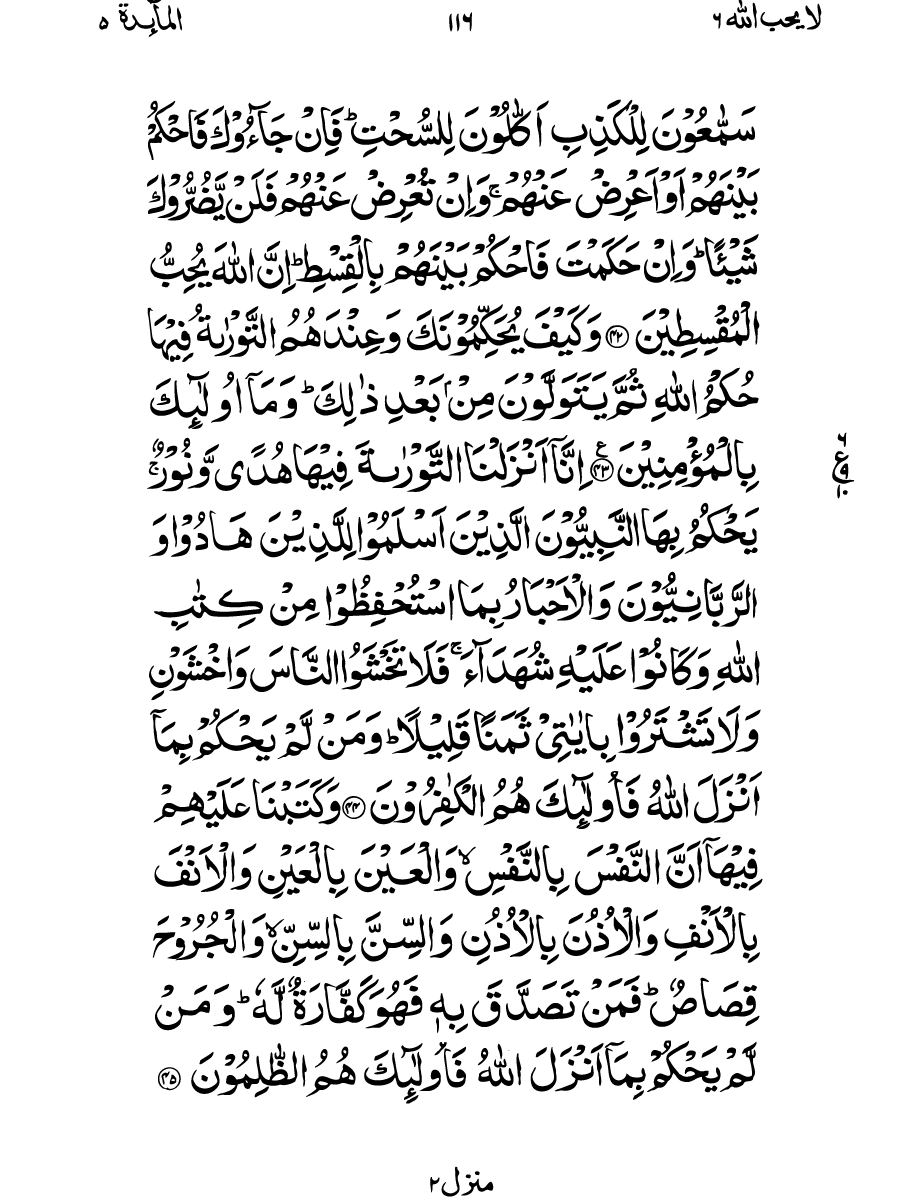 لا یحب الله ۶
۱۱۶
المآىِٕدة ۵
سَمّٰعُوْنَ لِلْكَذِبِ اَكّٰلُوْنَ لِلسُّحْتِؕ فَاِنْ جَآءُوْكَ فَاحْكُمْ
بَیْنَهُمْ اَوْ اَعْرِضْ عَنْهُمْۚ وَاِنْ تُعْرِضْ عَنْهُمْ فَلَنْ یَّضُرُّوْكَ
شَیْئًاؕ وَاِنْ حَكَمْتَ فَاحْكُمْ بَیْنَهُمْ بِالْقِسْطِؕ اِنَّ اللهَ یُحِبُّ
الْمُقْسِطِیْنَ ﴿۴۲﴾ وَكَیْفَ یُحَكِّمُوْنَكَ وَعِنْدَهُمُ التَّوْرٰىةُ فِیْهَا
حُكْمُ اللهِ ثُمَّ یَتَوَلَّوْنَ مِنْۢ بَعْدِ ذٰلِكَؕ وَمَاۤ اُولٰٓىِٕكَ
بِالْمُؤْمِنِیْنَ ﴿۴۳﴾ؑ اِنَّاۤ اَنْزَلْنَا التَّوْرٰىةَ فِیْهَا هُدًی وَّنُوْرٌۚ
یَحْكُمُ بِهَا النَّبِیُّوْنَ الَّذِیْنَ اَسْلَمُوْا لِلَّذِیْنَ هَادُوْا وَ
الرَّبّٰنِیُّوْنَ وَالْاَحْبَارُ بِمَا اسْتُحْفِظُوْا مِنْ كِتٰبِ
اللهِ وَكَانُوْا عَلَیْهِ شُهَدَآءَۚ فَلَا تَخْشَوُا النَّاسَ وَاخْشَوْنِ
وَلَا تَشْتَرُوْا بِاٰیٰتِیْ ثَمَنًا قَلِیْلًاؕ وَمَنْ لَّمْ یَحْكُمْ بِمَاۤ
اَنْزَلَ اللهُ فَاُولٰٓىِٕكَ هُمُ الْكٰفِرُوْنَ ﴿۴۴﴾ وَكَتَبْنَا عَلَیْهِمْ
فِیْهَاۤ اَنَّ النَّفْسَ بِالنَّفْسِۙ وَالْعَیْنَ بِالْعَیْنِ وَالْاَنْفَ
بِالْاَنْفِ وَالْاُذُنَ بِالْاُذُنِ وَالسِّنَّ بِالسِّنِّۙ وَالْجُرُوْحَ
قِصَاصٌؕ فَمَنْ تَصَدَّقَ بِهٖ فَهُوَ كَفَّارَةٌ لَّهٗؕ وَمَنْ
لَّمْ یَحْكُمْ بِمَاۤ اَنْزَلَ اللهُ فَاُولٰٓىِٕكَ هُمُ الظّٰلِمُوْنَ ﴿۴۵﴾
۶
ع
۹
۱۰
منزل ۲